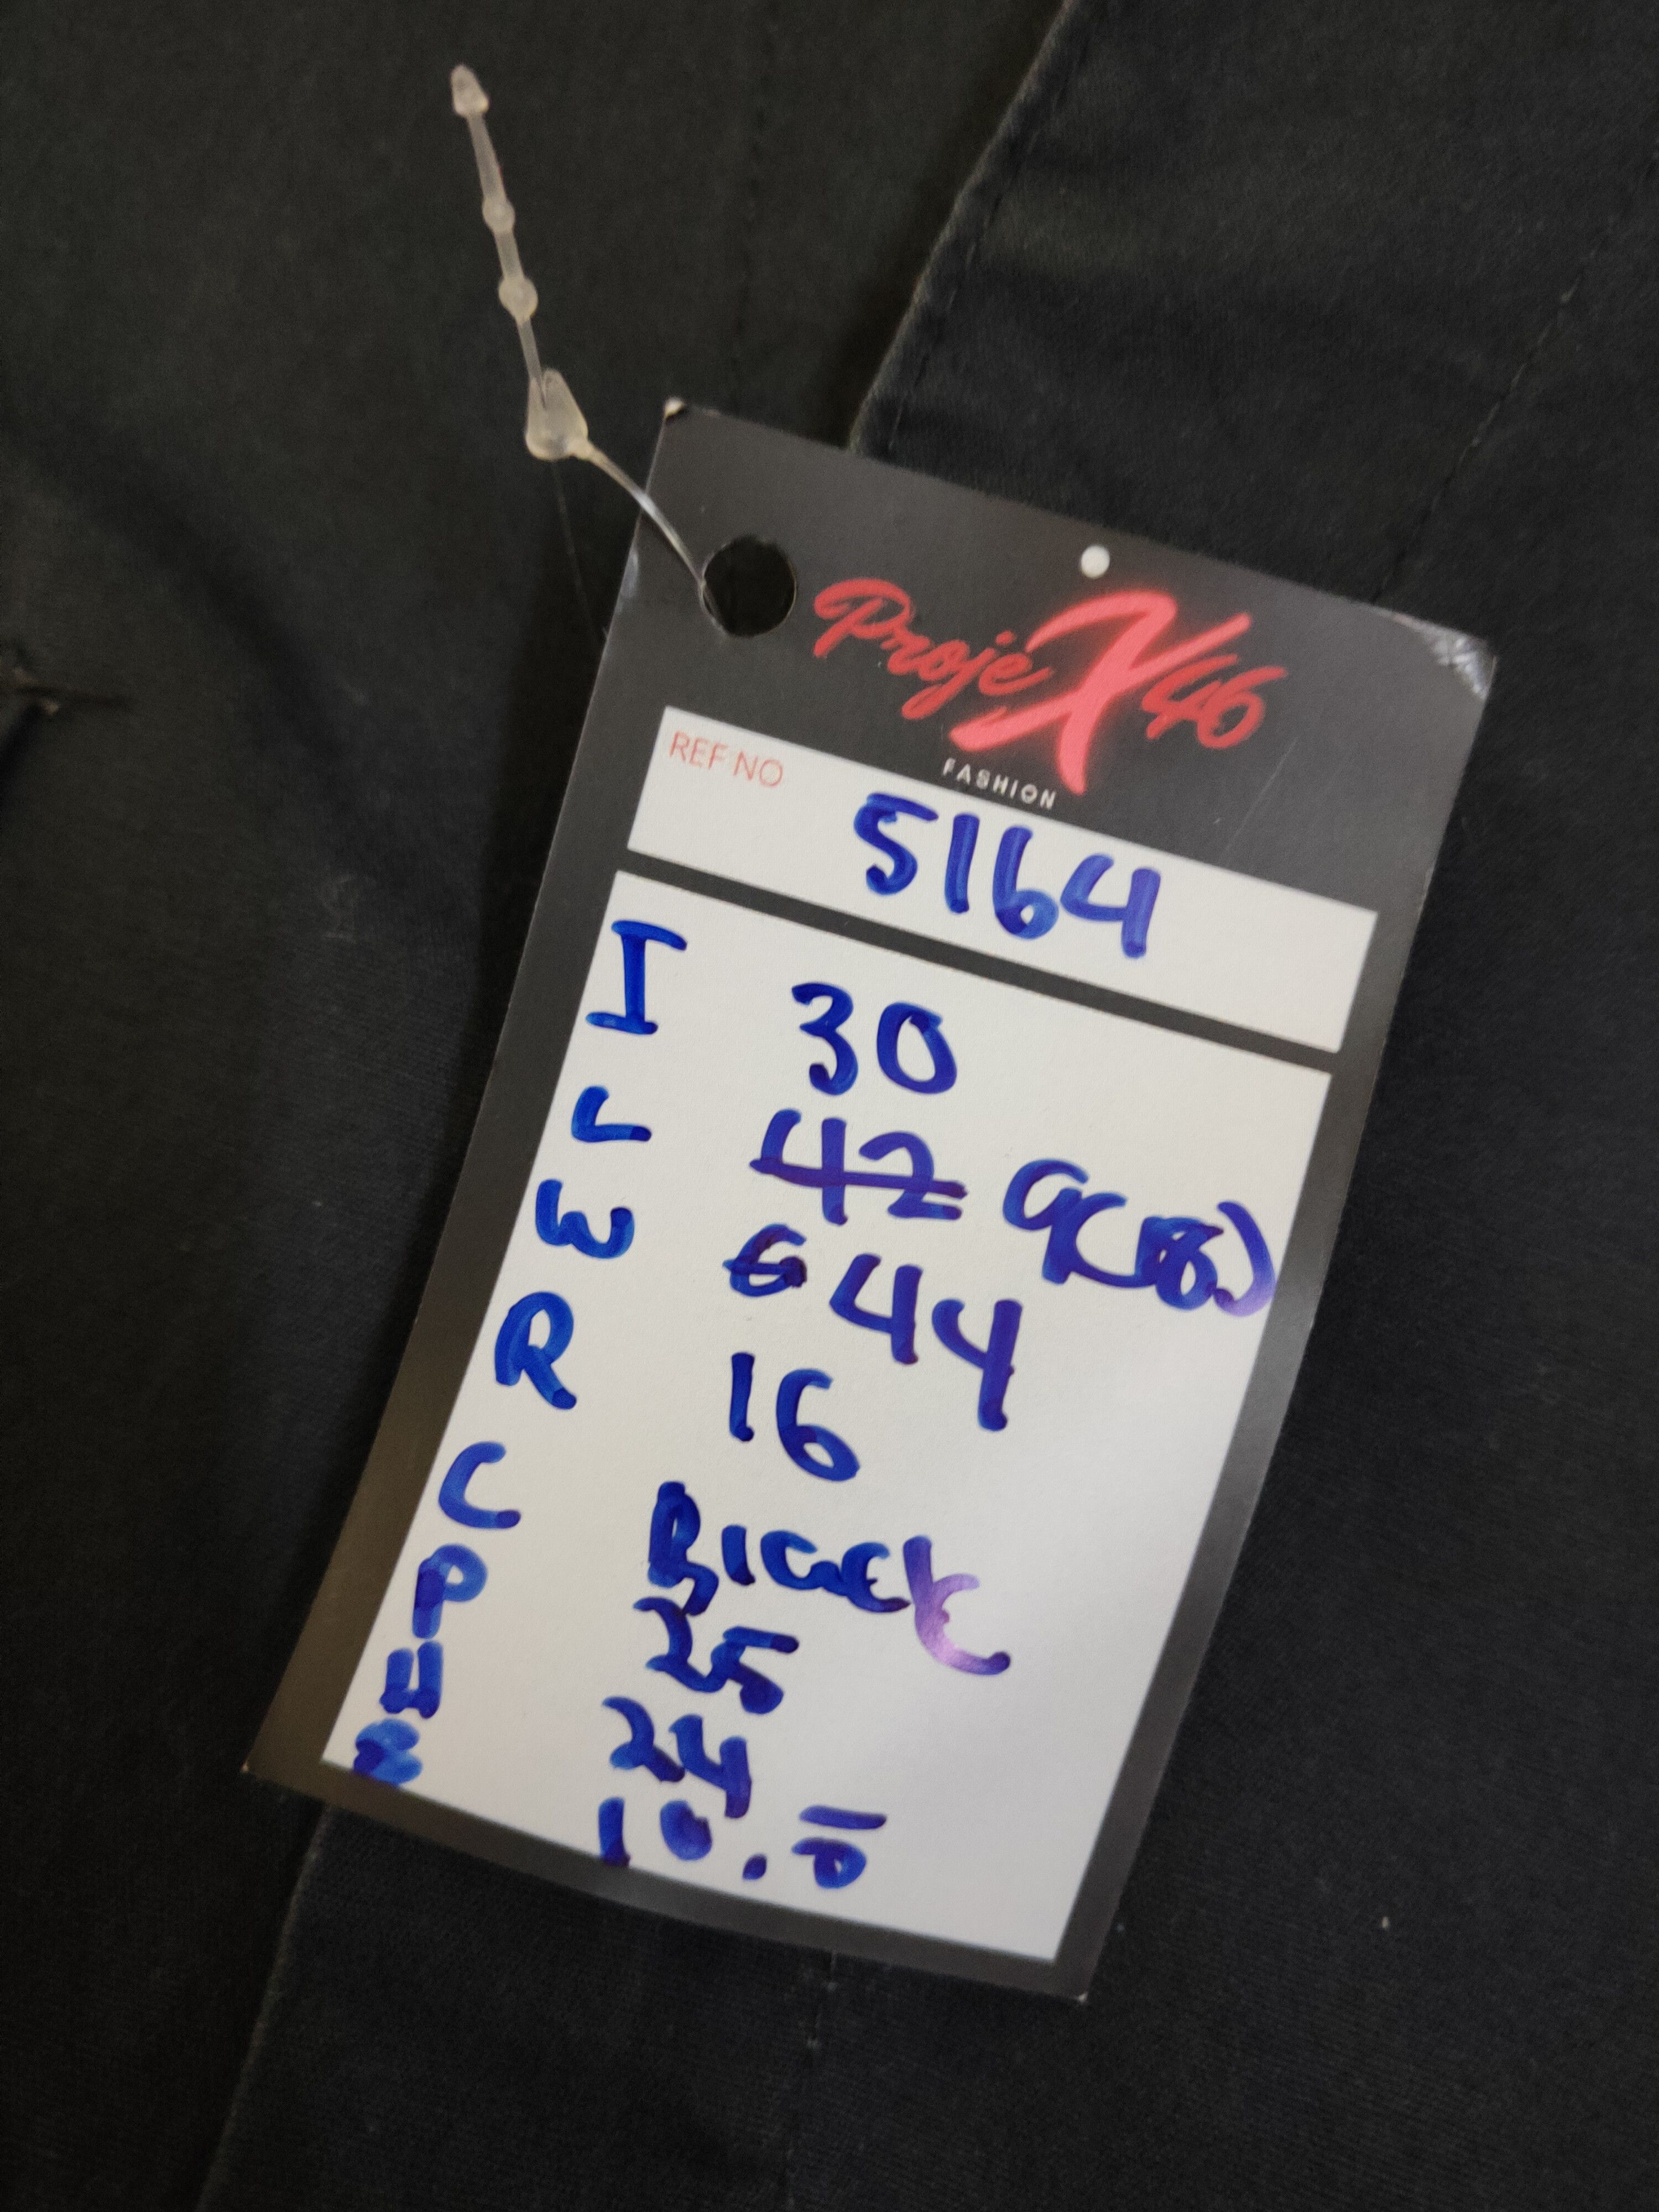 ProjeX46
FASHION
REF NO
5164
I 30
L 42
W 44
R 16
C Black
P 25
H 24
10.0